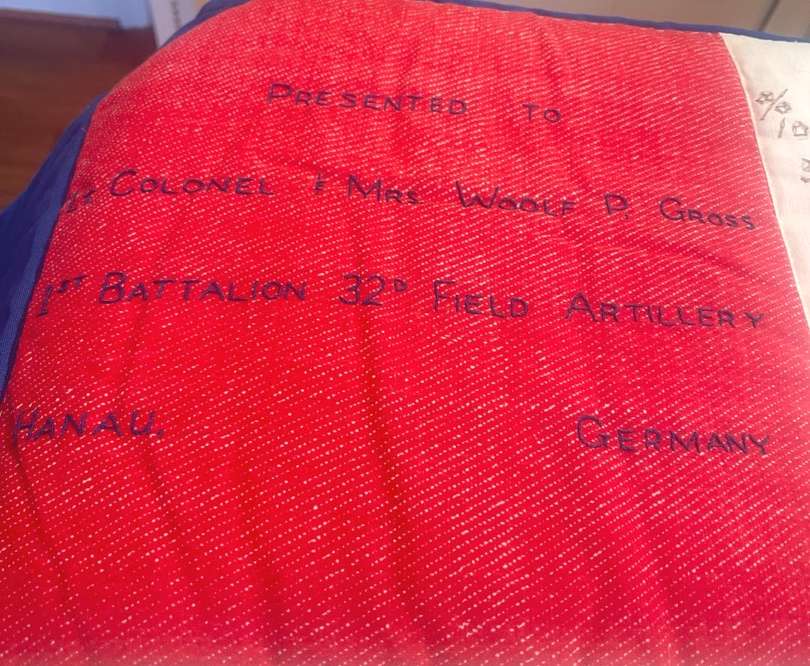 PRESENTED TO
COLONEL & MRS WOOLF P. GROSS
1ST BATTALION 32D FIELD ARTILLERY
HANAU. GERMANY